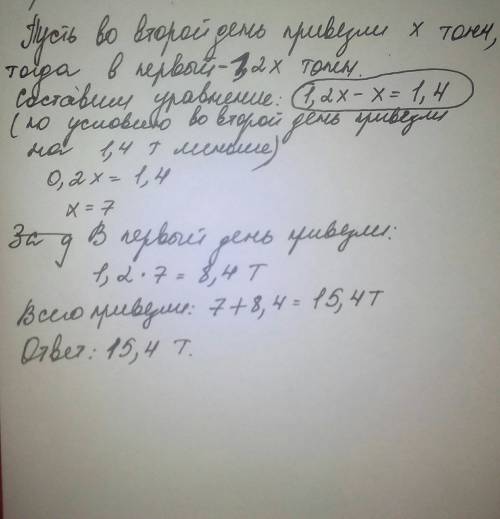 Пусть во второй день привезли x тонн,
тогда в первый - 1,2x тонн.
Составим уравнение: 1,2x - x = 1,4
(по условию во второй день привезли
на 1,4 т меньше)
0,2x = 1,4
x = 7
За д В первый день привезли:
1,2 · 7 = 8,4 т
Всего привезли: 7 + 8,4 = 15,4 т
Ответ: 15,4 т.